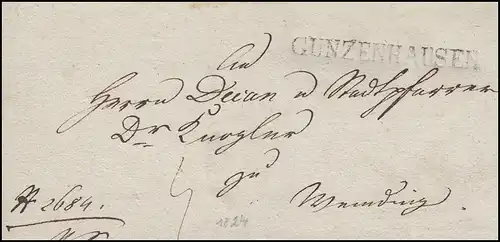 GUNZENHAUSEN
An
Herrn Decan u Stadtpfarrer
Dr
zu
Wemding.
2684.
1824